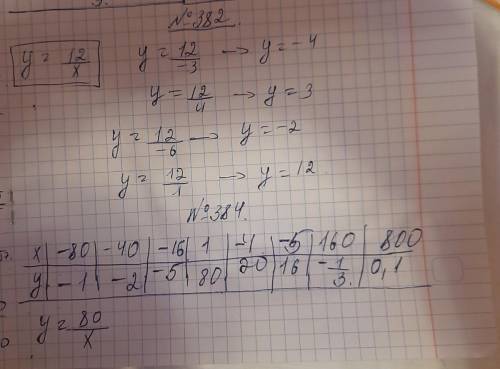 №382.
y = 12/x y = 12/-3 → y = -4
y = 12/4 → y = 3
y = 12/-6 → y = -2
y = 12/1 → y = 12
№384.
x | -80 | -40 | -16 | 1 | -4 | -5 | 160 | 800
y | -1 | -2 | -5 | 80 | 20 | 16 | -1/3. | 0,1
y = 80/x